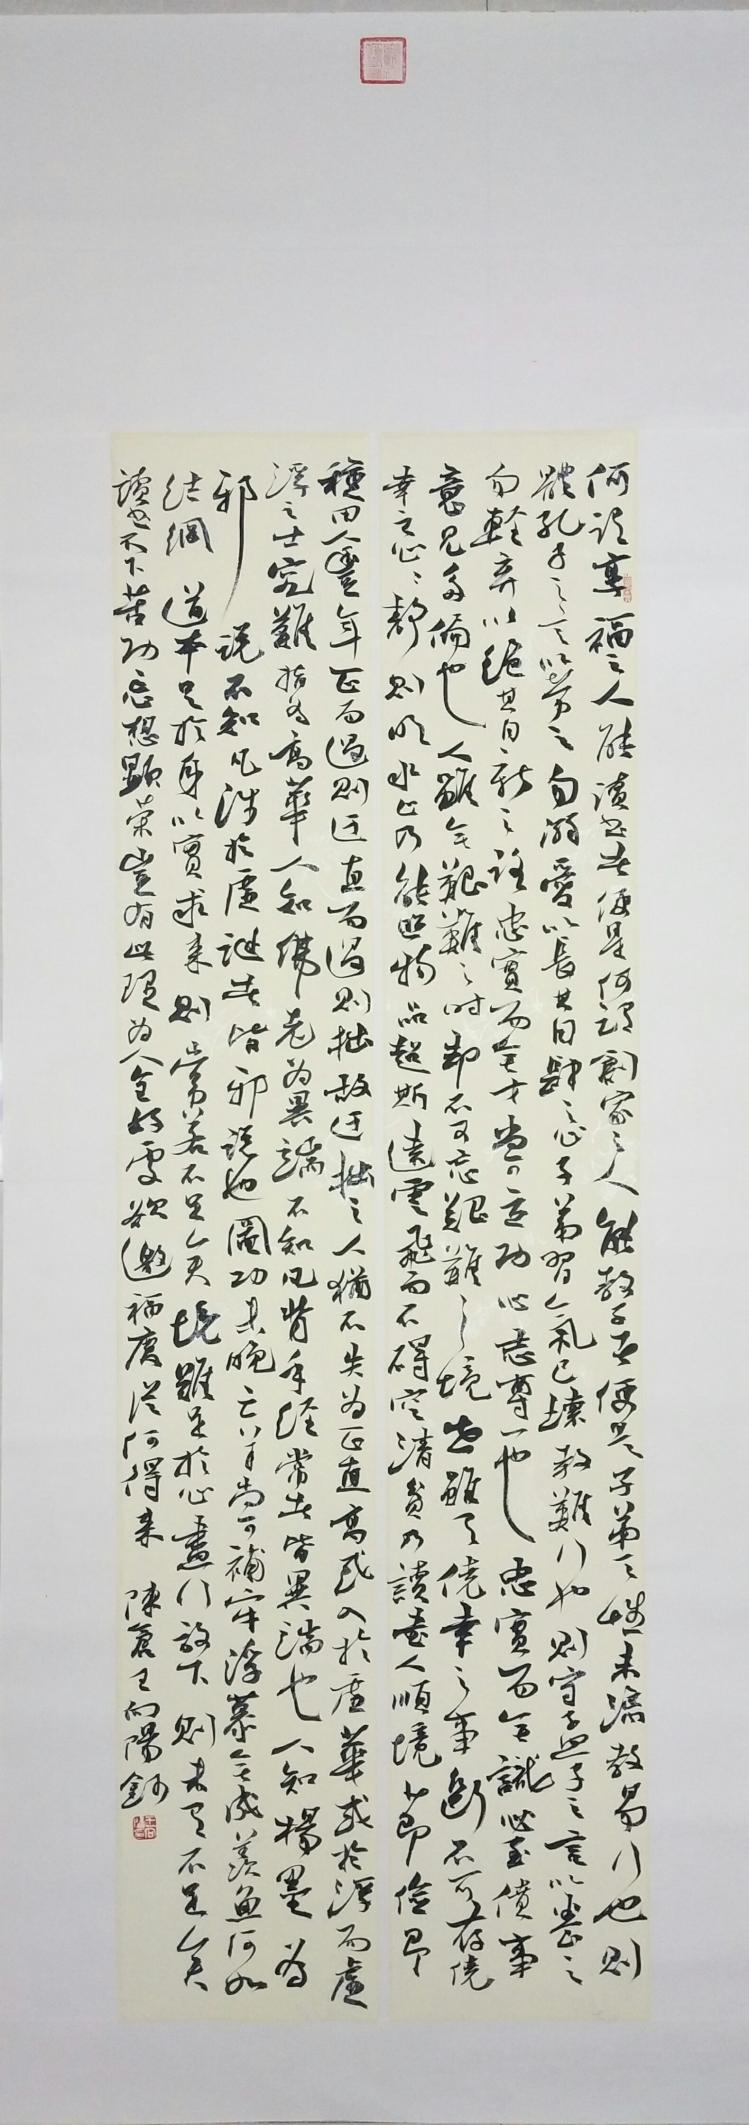 何謂享福之人能讀書者便是何謂創家之人能教子者便是子弟天性未漓教易行也則
體孔子之言以勞之勿溺愛以長其自肆之心子弟習氣已壞教難行也則守孟子之言以養之
勿輕棄以絕其自新之路忠實而無才尚可立功心志專一也忠實而無識必至僨事
意見多偏也人雖無艱難之時卻不可忘艱難之境世雖有僥幸之事斷不可存僥
幸之心心靜則明水止乃能照物品超斯遠雲飛而不礙空清貧乃讀書人順境節儉即
種田人豐年正而過則迂直而過則拙故迂拙之人猶不失為正直高或入於虛華或於浮而虛
浮之士究難指為高華人知佛老為異端不知凡背乎經常者皆異端也人知楊墨為
邪說不知凡涉於虛誕者皆邪說也圖功未晚亡羊尚可補牢浮慕無成羨魚何如
結網道本足於身以實求來則常若不足矣境難足於心盡行放下則未有不足矣
讀書不下苦功忘想顯榮豈有此理為人全好處欲邀福慶從何得來 陳倉王向陽鈔